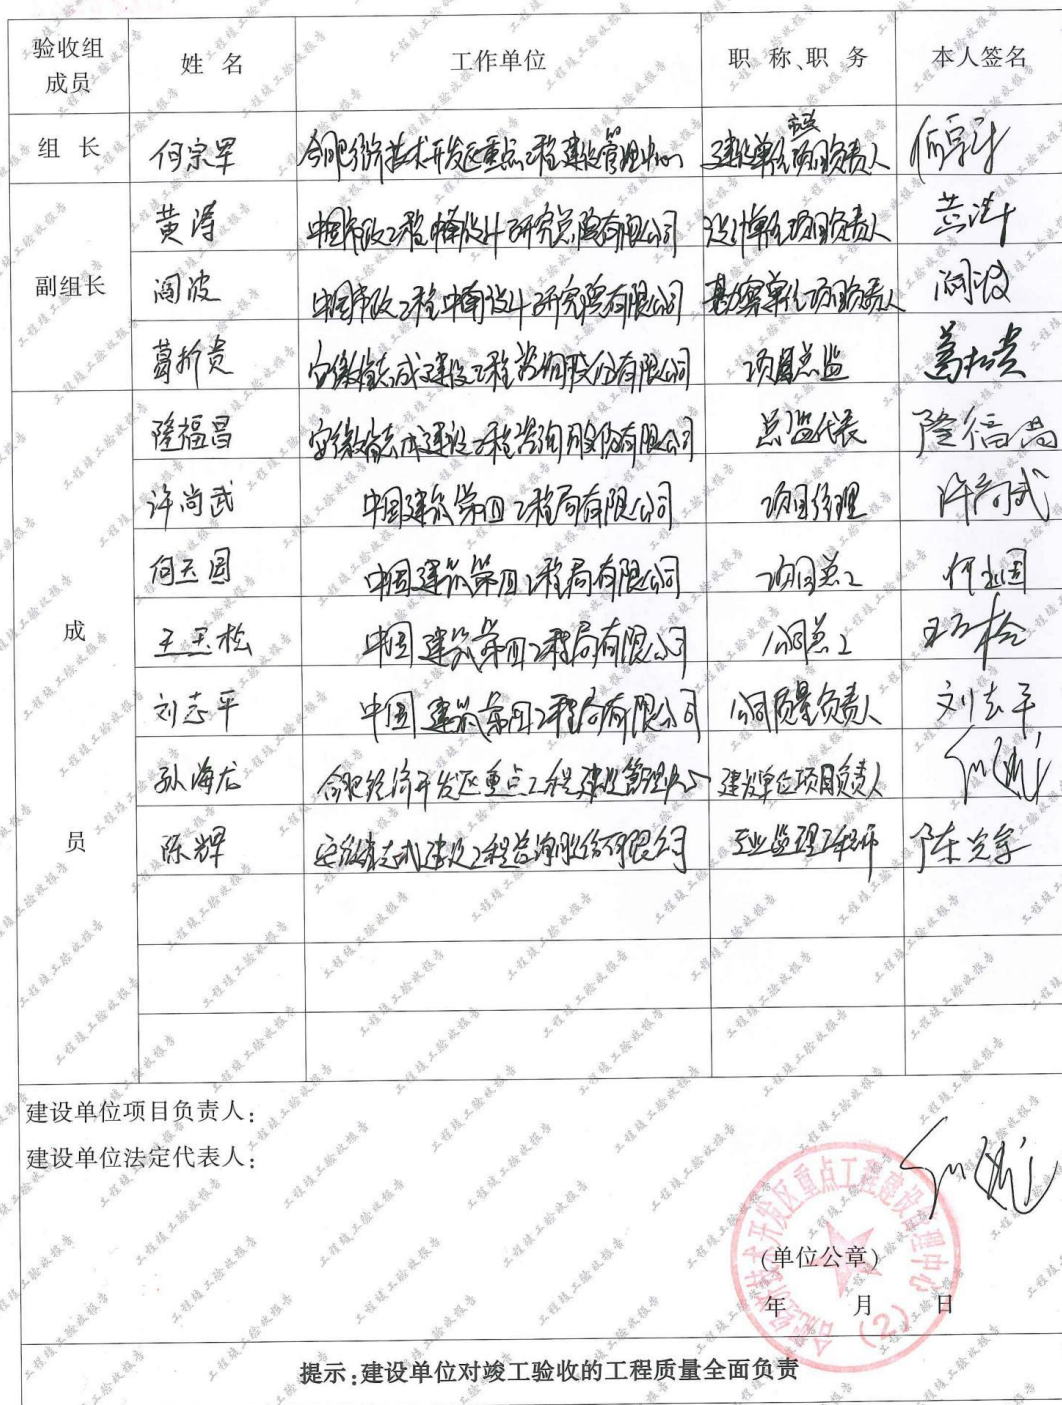 验收组成员 姓名 工作单位 职称、职务 本人签名
组长 何宗军 合肥经济技术开发区重点工程建设管理中心 建设单位项目负责人
副组长
黄涛 中国市政工程中南设计研究总院有限公司 设计单位项目负责人 黄涛
阎波 中国市政工程中南设计研究院有限公司 勘察单位项目负责人 阎波
葛折贵 安徽省志成建设工程咨询股份有限公司 项目总监
成员
隆福昌 安徽省志成建设工程咨询股份有限公司 总监代表 隆福昌
许尚武 中国建筑第四工程局有限公司 项目经理 许尚武
何玉国 中国建筑第四工程局有限公司 项目总工
王玉松 中国建筑第四工程局有限公司 公司总工 王玉松
刘志平 中国建筑第四工程局有限公司 公司质量负责人 刘志平
孙海龙 合肥经济开发区重点工程建设管理中心 建设单位项目负责人
陈辉 安徽省志成建设工程咨询股份有限公司 专业监理工程师 陈辉
建设单位项目负责人:
建设单位法定代表人:
合肥经济技术开发区重点工程建设管理中心
(2)
(单位公章)
年 月 日
提示:建设单位对竣工验收的工程质量全面负责
工程竣工验收报告